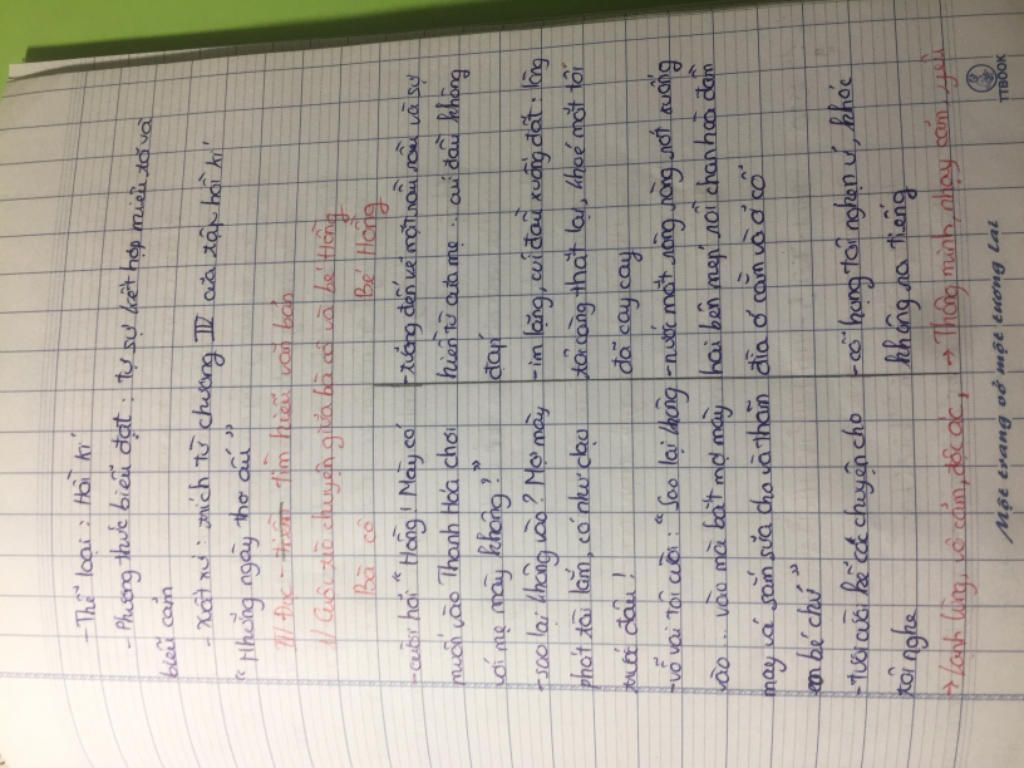 - Thể loại: Hồi kí
- Phương thức biểu đạt: tự sự kết hợp miêu tả và
biểu cảm
- Xuất xứ: trích từ chương IV của tập hồi kí
"Những ngày thơ ấu"
II/ Đọc - tìm hiểu văn bản
1/ Cuộc trò chuyện giữa bà cô và bé Hồng
Bà cô
- cười hỏi "Hồng! Mày có
muốn vào Thanh Hóa chơi
với mẹ mày không?"
- sao lại không vào? Mợ mày
phát tài lắm, có như dạo
trước đâu!
- vỗ vai tôi cười: "Sao lại không
vào.. vào mà bắt mợ mày
may vá sắm sửa cho và thăm
em bé chứ"
- tươi cười kể các chuyện cho
tôi nghe
→ Lạnh lùng, vô cảm, độc ác,
Bé Hồng
- tưởng đến vẻ mặt rầu rầu và sự
hiền từ của mẹ.. cúi đầu không
đáp
- im lặng, cúi đầu xuống đất: lòng
tôi càng thắt lại, khóe mắt tôi
đã cay cay
- nước mắt ròng ròng rớt xuống
hai bên mép rồi chan hòa đầm
đìa ở cằm và ở cổ
- cổ họng tôi nghẹn ứ, khóc
không ra tiếng
→ Thông minh, nhạy cảm, yêu
Một trang vở một tương lai
TTBOOK